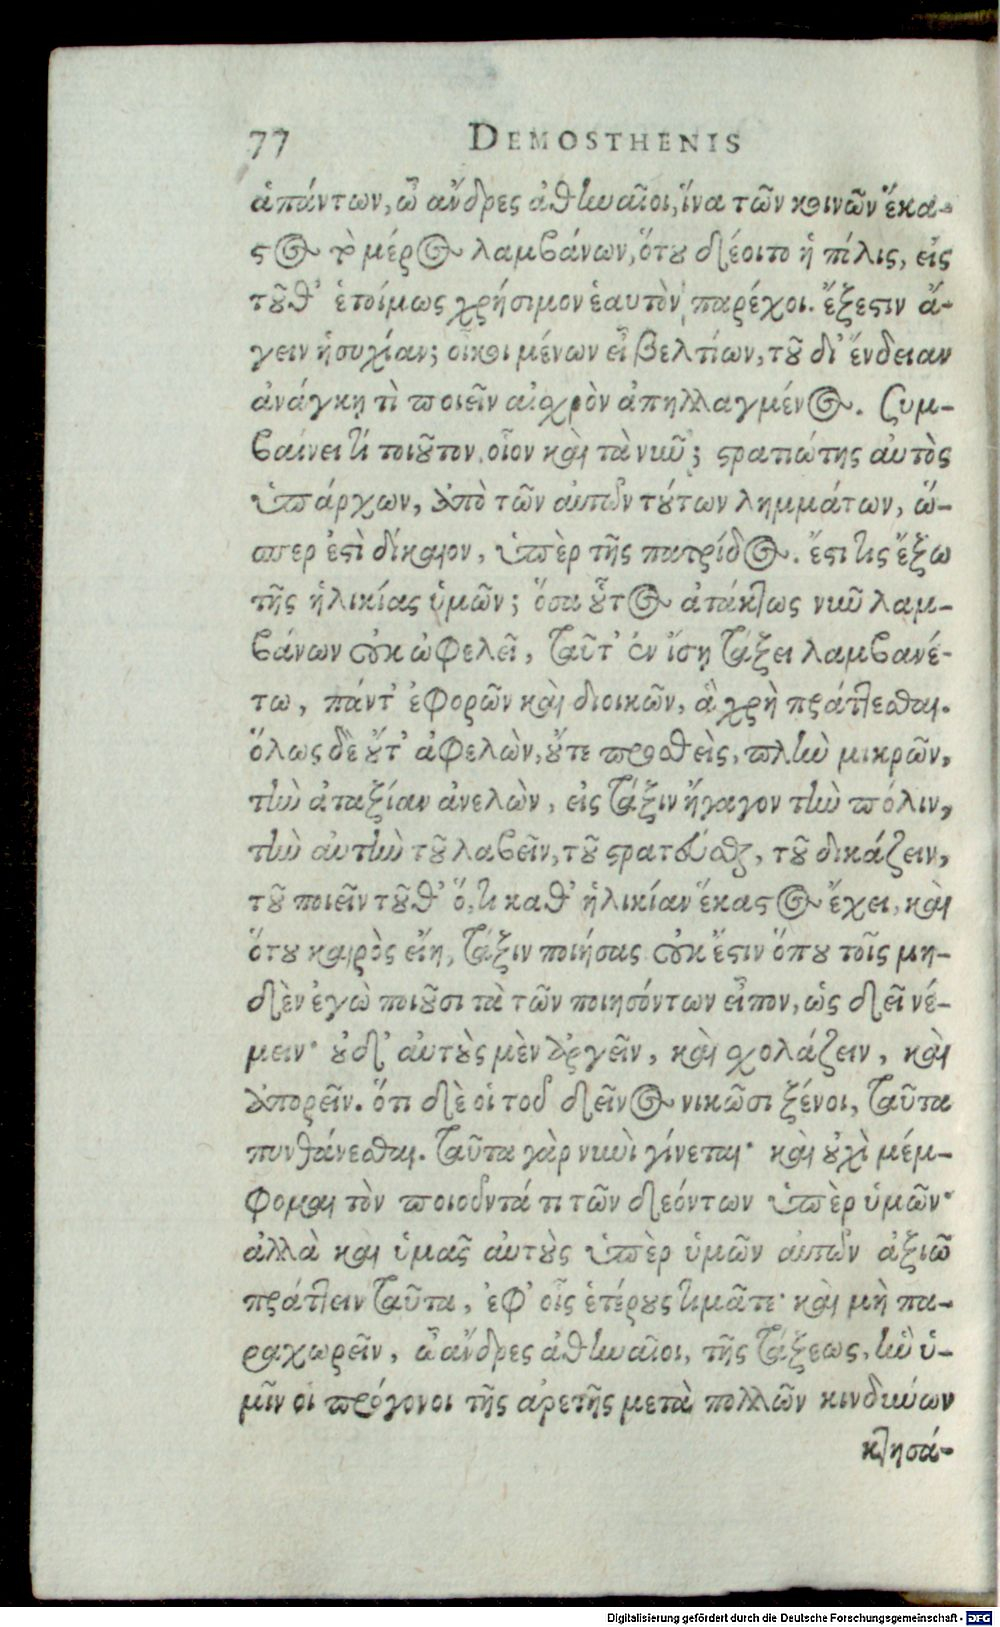 77 DEMOSTHENIS
ἁπάντων, ὦ ἄνδρες ἀθηναῖοι, ἵνα τῶν κοινῶν ἕκα-
στος τὸ μέρος λαμβάνων, ὅτου δέοιτο ἡ πόλις, εἰς
τοῦθ' ἑτοίμως χρήσιμον ἑαυτὸν παρέχοι. ἔξεστιν ἄ-
γειν ἡσυχίαν; οἴκοι μένων εἶ βελτίων, τοῦ δι' ἔνδειαν
ἀνάγκη τὶ ποιεῖν αἰσχρὸν ἀπηλλαγμένος. Συμ-
βαίνει τί τοιοῦτον, οἷον καὶ τὰ νῦν; στρατιώτης αὐτὸς
ὑπάρχων, ἀπὸ τῶν αὐτῶν τούτων λημμάτων, ὥ-
σπερ ἐστὶ δίκαιον, ὑπὲρ τῆς πατρίδος. ἔστι τις ἔξω
τῆς ἡλικίας ὑμῶν; ὅσα οὗτος ἀτάκτως νῦν λαμ-
βάνων οὐκ ὠφελεῖ, ταῦτ' ἐν ἴση τάξει λαμβανέ-
τω, πάντ' ἐφορῶν καὶ διοικῶν, ἃ χρὴ πράττεσθαι.
ὅλως δὲ οὔτ' ἀφελὼν, οὔτε προσθεὶς, πλὴν μικρῶν,
τὴν ἀταξίαν ἀνελὼν, εἰς τάξιν ἤγαγον τὴν πόλιν,
τὴν αὐτὴν τοῦ λαβεῖν, τοῦ στρατεύεσθαι, τοῦ δικάζειν,
τοῦ ποιεῖν τοῦθ' ὅ, τι καθ' ἡλικίαν ἕκαστος ἔχει, καὶ
ὅτου καιρὸς εἴη, τάξιν ποιήσας. οὐκ ἔστιν ὅπου τοῖς μη-
δὲν ἐγὼ ποιοῦσι τὰ τῶν ποιησόντων εἶπον, ὡς δεῖ νέ-
μειν· οὐδ' αὐτοὺς μὲν ἀργεῖν, καὶ σχολάζειν, καὶ
ἀπορεῖν. ὅτι δὲ οἱ τοῦ δεῖνος νικῶσι ξένοι, ταῦτα
πυνθάνεσθαι. ταῦτα γὰρ νυνὶ γίνεται· καὶ οὐχὶ μέμ-
φομαι τὸν ποιοῦντά τι τῶν δεόντων ὑπὲρ ὑμῶν·
ἀλλὰ καὶ ὑμᾶς αὐτοὺς ὑπὲρ ὑμῶν αὐτῶν ἀξιῶ
πράττειν ταῦτα, ἐφ' οἷς ἑτέρους τιμᾶτε· καὶ μὴ πα-
ραχωρεῖν, ὦ ἄνδρες ἀθηναῖοι, τῆς τάξεως, ἣν ὑ-
μῖν οἱ πρόγονοι τῆς ἀρετῆς μετὰ πολλῶν κινδύνων
κτησά-
Digitalisierung gefördert durch die Deutsche Forschungsgemeinschaft - DFG